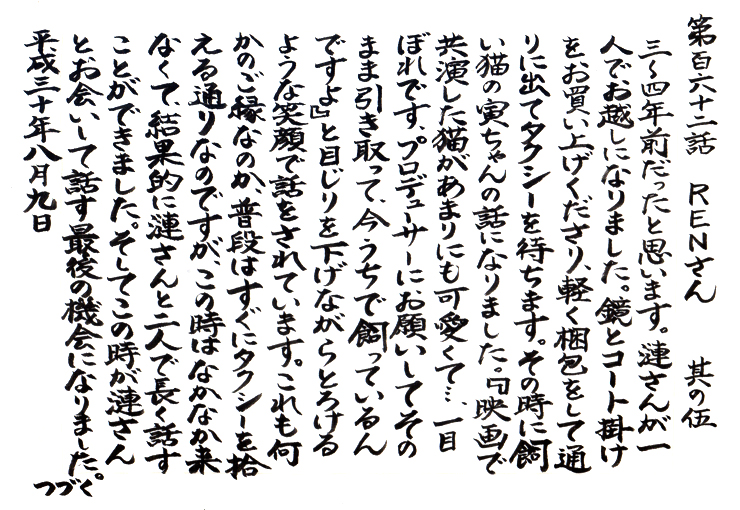 第百六十二話　RENさん　其の伍
三〜四年前だったと思います。漣さんが一
人でお越しになりました。鏡とコート掛け
をお買い上げくださり、軽く梱包をして通
りに出てタクシーを待ちます。その時に飼
い猫の寅ちゃんの話になりました。『映画で
共演した猫があまりにも可愛くて…、一目
ぼれです、プロデューサーにお願いしてその
まま引き取って、今うちで飼っているん
ですよ』と目じりを下げながらとろける
ような笑顔で話をされています。これも何
かのご縁なのか、普段はすぐにタクシーを拾
える通りなのですが、この時はなかなか来
なくて、結果的に漣さんと二人で長く話す
ことができました。そしてこの時が漣さん
とお会いして話す最後の機会になりました。
平成三十年八月九日
つづく